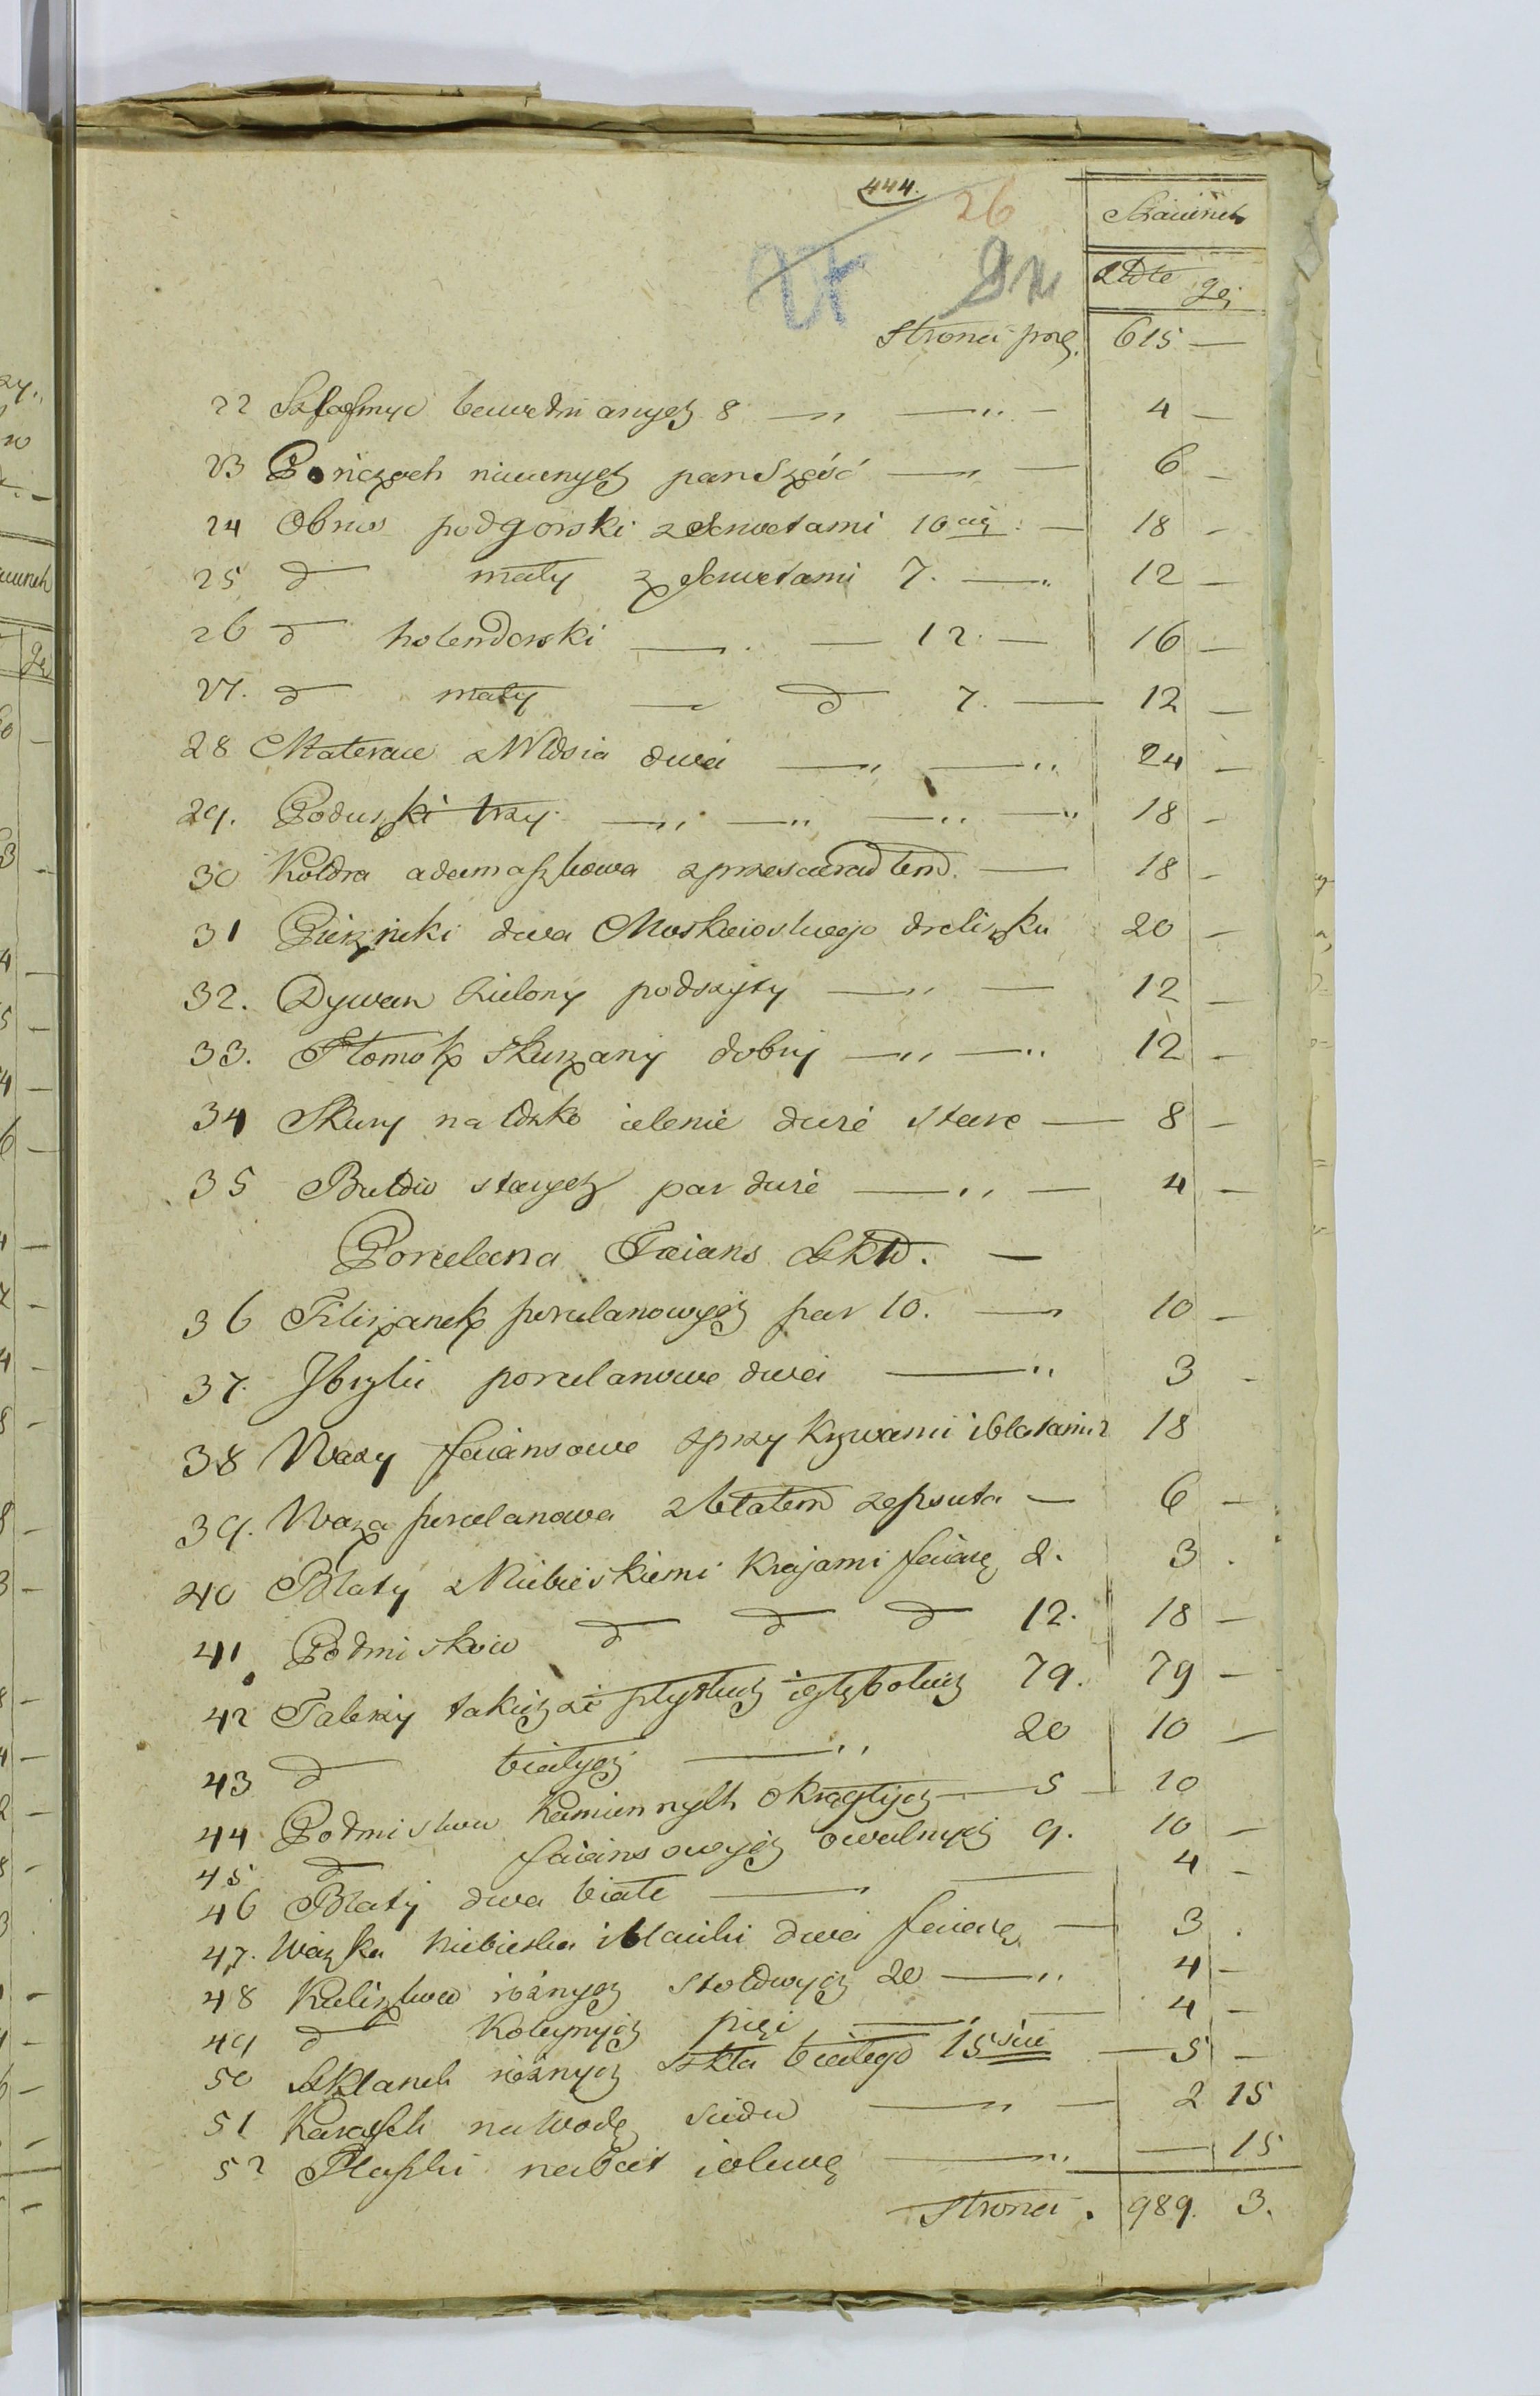 444.
26
Szacunek
Złote gr
Strona prze. 615 —
22 Szlafmyc bawełnianych 8 — 4 —
23 Pończoch nicianych par Sześć — 6 —
24 Obrus podgorski z Serwetami 10cią — 18 —
25 d mały z Serwetami 7. — 12 —
26 d holenderski — 12. — 16 —
27. d mały — d 7. — 12 —
28 Materace z Włosia dwa — 24 —
29. Poduszki trzy — 18 —
30 Kołdra adamaszkowa z przescieradłem. — 18 —
31 Pierzynki dwa Moskiewskiego dreliszku 20 —
32. Dywan Zielony podszyty — 12 —
33. Tłomok skurzany dobry — 12 —
34 Skury na łóżko ielenie duże stare — 8 —
35 Butów starych par dwie — 4 —
Porcelana Faians Szkło. —
36 Filiżanek porcelanowych par 10. — 10 —
37. Jbryki porcelanowe dwa — 3 -
38 Wazy faiansowe z przykrywami i blatami 2 18
39. Waza porcelanowa z blatem zepsuta — 6 —
40 Blaty z Niebieskiemi Krajami faians 2. 3 .
41 Podmisków d d d 12. 18 —
42 Talerzy takichże płytkich i głębokich 79. 79 —
43 d białych — 20 10 —
44 Podmisków Kamiennych okrągłych — 5 10
45 d faiansowych owalnych 9. 10 —
46 Blaty dwa białe — 4 -
47. Wazka niebieska i blaciki dwa faians — 3 .
48 Kieliszków różnych stołowych 20 — 4 —
49 d Koleynych pięć — 4 —
50 Szklanek różnych Szkła białego 15ście — 5 —
51 Karafek na Wodę siedm — 2 15
52 Flaszki na Ocet i oliwę — 15
Strona . 989. 3.